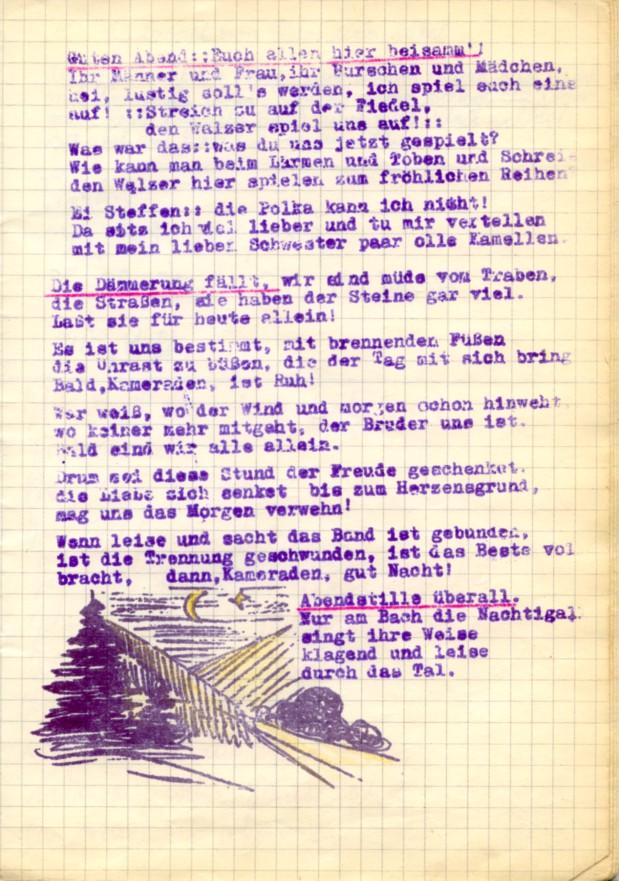 Guten Abend::Euch allen hier beisamm'!
Ihr Männer und Frau,ihr Burschen und Mädchen,
hei, lustig soll's werden, ich spiel euch eins
auf! ::Streich zu auf der Fiedel,
den Walzer spiel uns auf!::
Was war das::was du uns jetzt gespielt?
Wie kann man beim Lärmen und Toben und Schrei
den Walzer hier spielen zum fröhlichen Reihen
Ei Steffen:: die Polka kann ich nicht!
Da sitz ich viel lieber und tu mir vertellen
mit mein lieber Schwester paar olle Kamellen.
Die Dämmerung fällt, wir sind müde vom Traben,
die Straßen, sie haben der Steine gar viel.
Laßt sie für heute allein!
Es ist uns bestimmt, mit brennenden Füßen
die Unrast zu büßen, die der Tag mit sich bring
Bald,Kameraden, ist Ruh!
Wer weiß, wo der Wind uns morgen schon hinweht,
wo keiner mehr mitgeht, der Bruder uns ist.
Bald sind wir alle allein.
Drum sei diese Stund der Freude geschenket.
die Liebe sich senket bis zum Herzensgrund,
mag uns das Morgen verwehn!
Wenn leise und sacht das Band ist gebunden,
ist die Trennung geschwunden, ist das Beste vol
bracht, dann,Kameraden, gut Nacht!
Abendstille überall.
Nur am Bach die Nachtigal
singt ihre Weise
klagend und leise
durch das Tal.